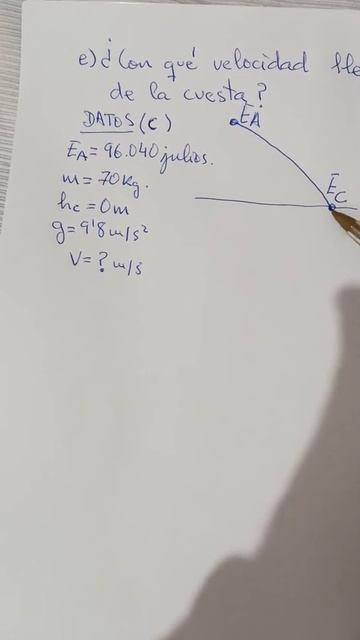 e) ¿Con qué velocidad
de la cuesta?
DATOS (C)
EA
EA = 96.040 julios.
m = 70 kg.
EC
hc = 0 m
g = 9'8 m/s²
V = ? m/s